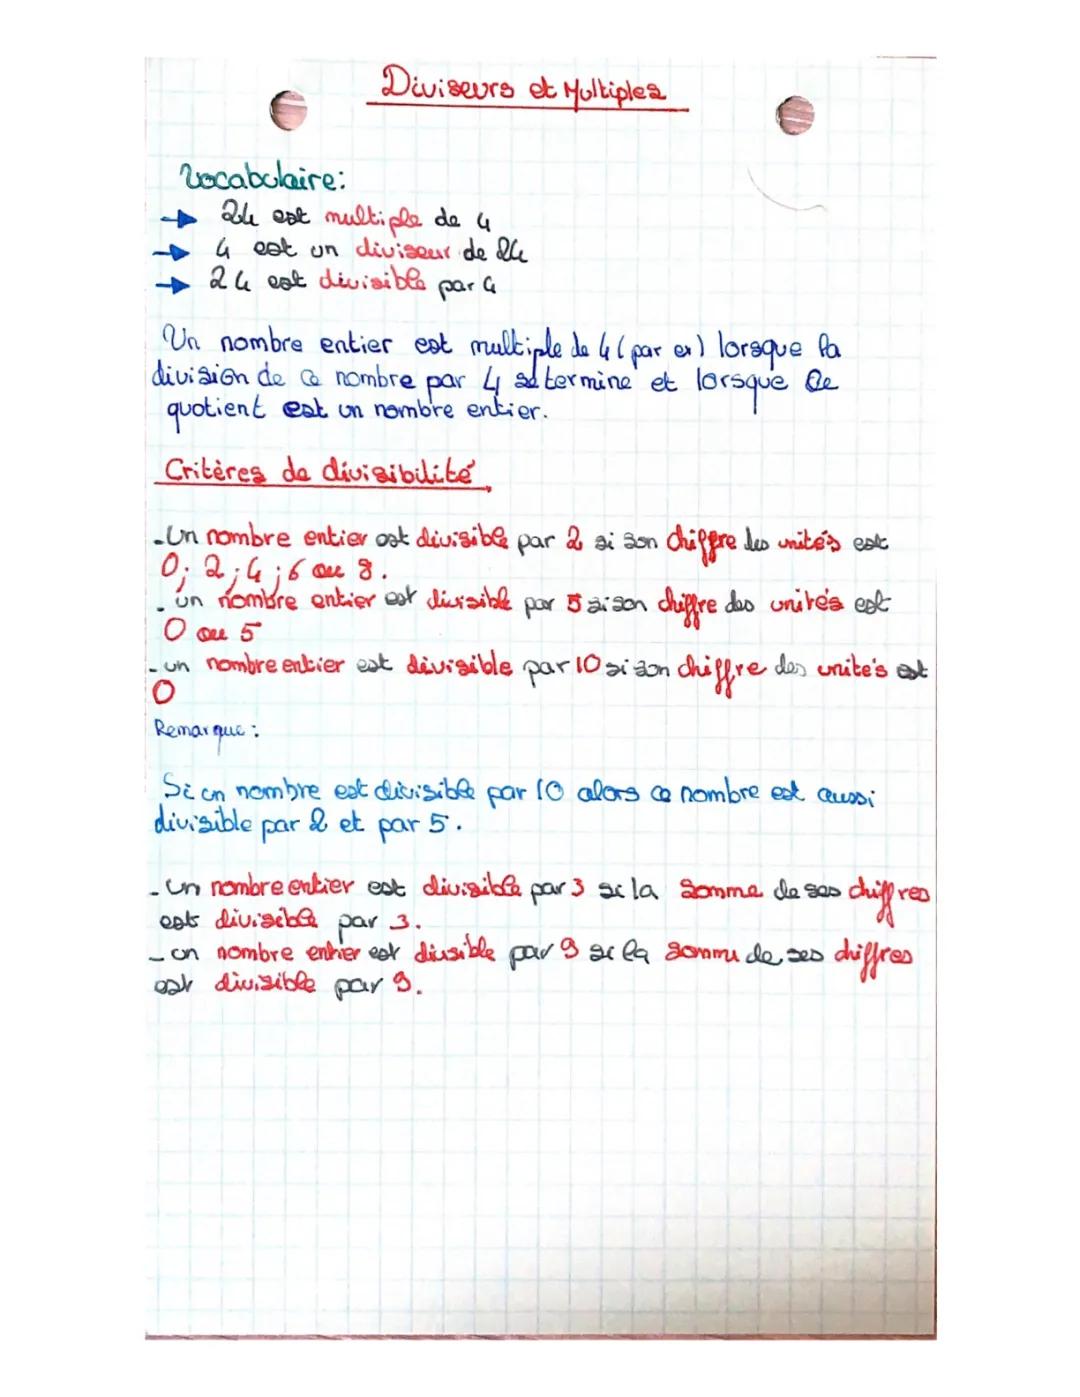 Diviseurs et Multiples
Vocabulaire:
→ 24 est multiple de 4
→ 4 est un diviseur de 24
→ 24 est divisible par 4
Un nombre entier est multiple de 4 (par ex) lorsque la
division de ce nombre par 4 se termine et lorsque le
quotient est un nombre entier.
Critères de divisibilité
-Un nombre entier est divisible par 2 si son chiffre des unités est
0; 2; 4; 6 ou 8.
- un nombre entier est divisible par 5 si son chiffre des unités est
0 ou 5
- un nombre entier est divisible par 10 si son chiffre des unités est
0
Remarque:
Si un nombre est divisible par 10 alors ce nombre est aussi
divisible par 2 et par 5.
- un nombre entier est divisible par 3 si la somme de ses chiffres
est divisible par 3.
- un nombre entier est divisible par 9 si la somme de ses chiffres
est divisible par 9.